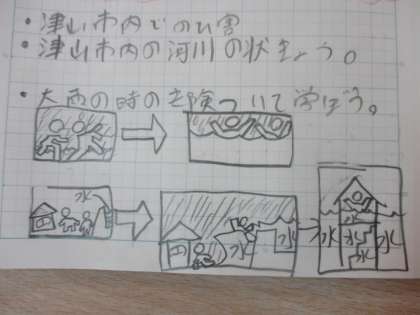 ・津山市内でのひ害
・津山市内の河川の状きょう。
・大雨の時の危険ついて学ぼう。
水
水 水
水
水 水 水
水